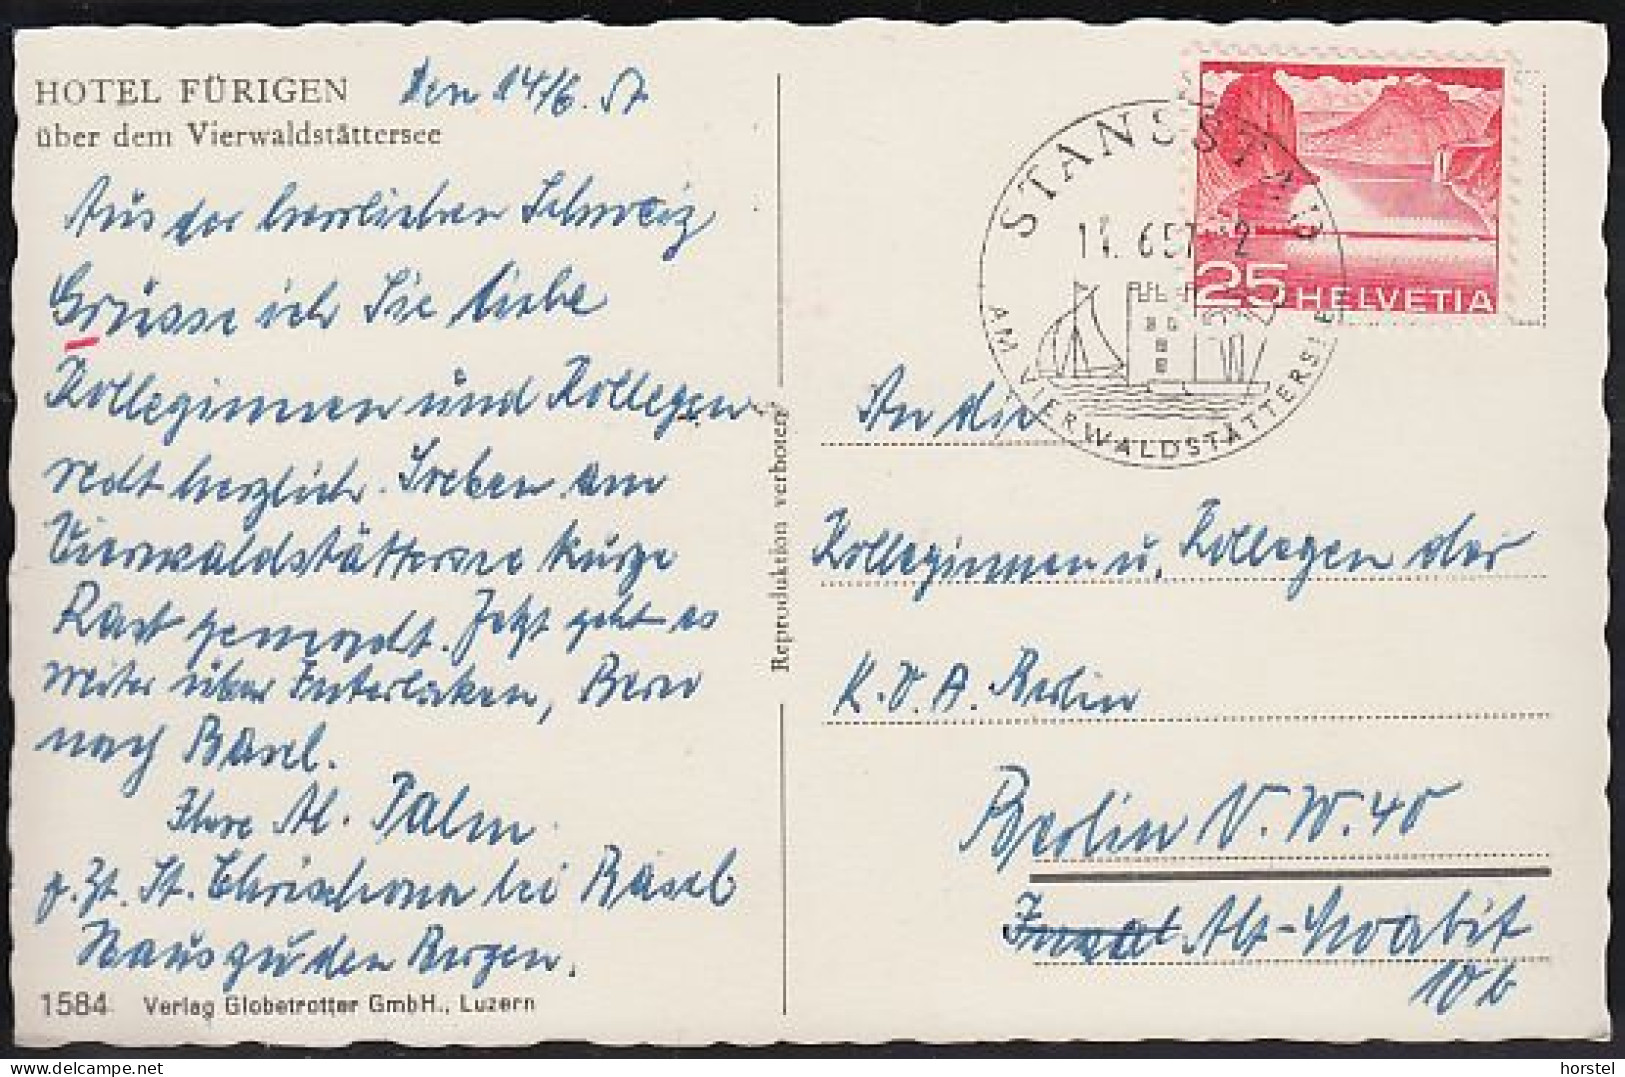 HOTEL FÜRIGEN
über dem Vierwaldstättersee
Den 14/6. 57
Aus der herrlichen Schweiz
Grüsse ich Sie liebe
Kolleginnen und Kollegen
recht herzlich. Soeben am
Vierwaldstättersee kurze
Rast gemacht. Jetzt geht es
weiter über Interlaken, Bern
nach Basel.
Ihre M. Palm
z. Zt. St. Chrischona bei Basel
Haus zu den Bergen.
1584 Verlag Globetrotter GmbH., Luzern
Reproduktion verboten
STANSSTAD
14. 6 57-12
AM VIERWALDSTÄTTERSEE
25 HELVETIA
An die
Kolleginnen u. Kollegen der
K.V.A. Berlin
Berlin N.W. 40
Alt-Moabit
10 b
horstel